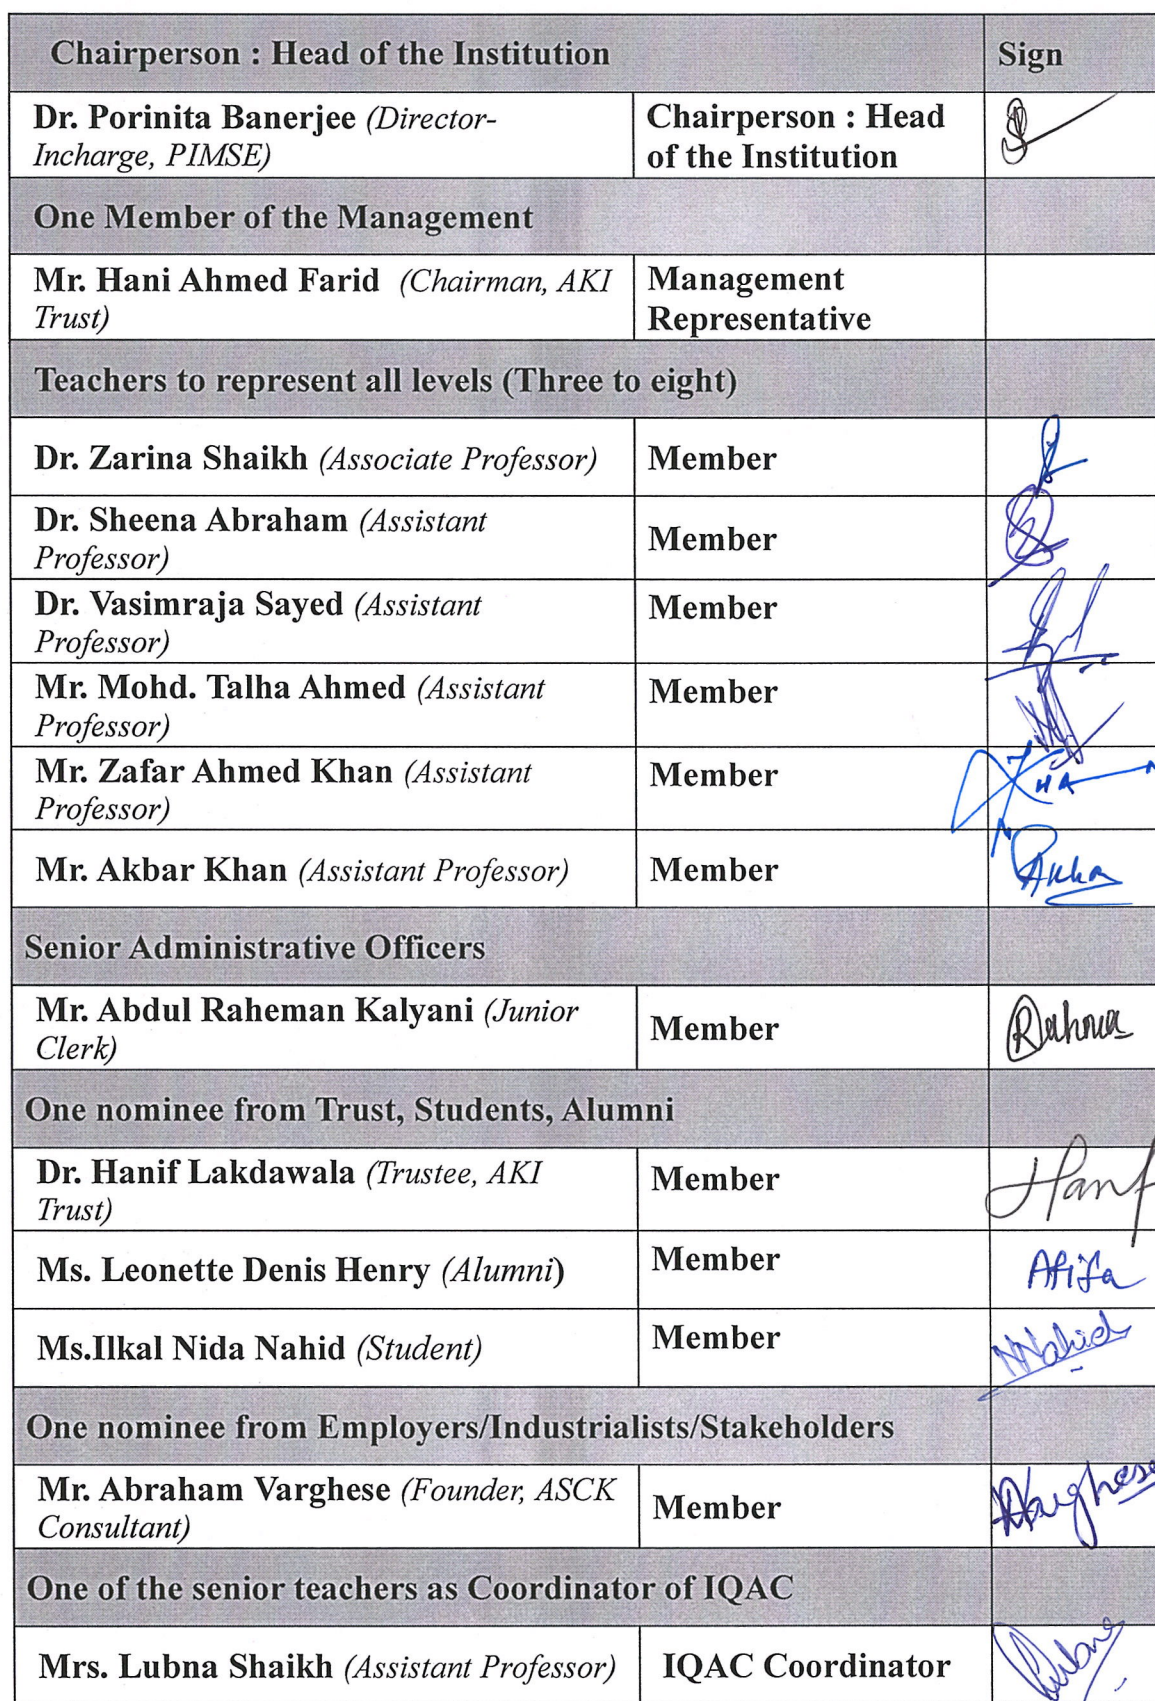 Chairperson : Head of the Institution Sign
Dr. Porinita Banerjee (Director-
Incharge, PIMSE)
Chairperson : Head
of the Institution
One Member of the Management
Mr. Hani Ahmed Farid (Chairman, AKI
Trust)
Management
Representative
Teachers to represent all levels (Three to eight)
Dr. Zarina Shaikh (Associate Professor) Member
Dr. Sheena Abraham (Assistant
Professor)
Member
Dr. Vasimraja Sayed (Assistant
Professor)
Member
Mr. Mohd. Talha Ahmed (Assistant
Professor)
Member
Mr. Zafar Ahmed Khan (Assistant
Professor)
Member
Mr. Akbar Khan (Assistant Professor) Member
Senior Administrative Officers
Mr. Abdul Raheman Kalyani (Junior
Clerk)
Member
One nominee from Trust, Students, Alumni
Dr. Hanif Lakdawala (Trustee, AKI
Trust)
Member
Ms. Leonette Denis Henry (Alumni) Member Afifa
Ms.Ilkal Nida Nahid (Student) Member NNahid
One nominee from Employers/Industrialists/Stakeholders
Mr. Abraham Varghese (Founder, ASCK
Consultant)
Member Varghese
One of the senior teachers as Coordinator of IQAC
Mrs. Lubna Shaikh (Assistant Professor) IQAC Coordinator